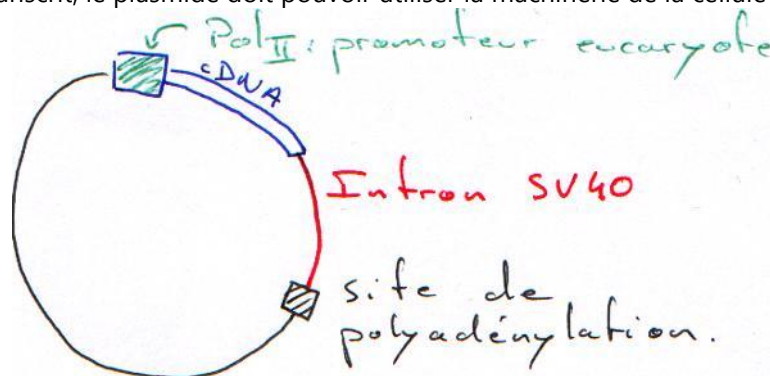 transcrit, le plasmide doit pouvoir utiliser la machinerie de la cellule
Pol II : promoteur eucaryote
cDNA
Intron SV40
site de
polyadénylation.